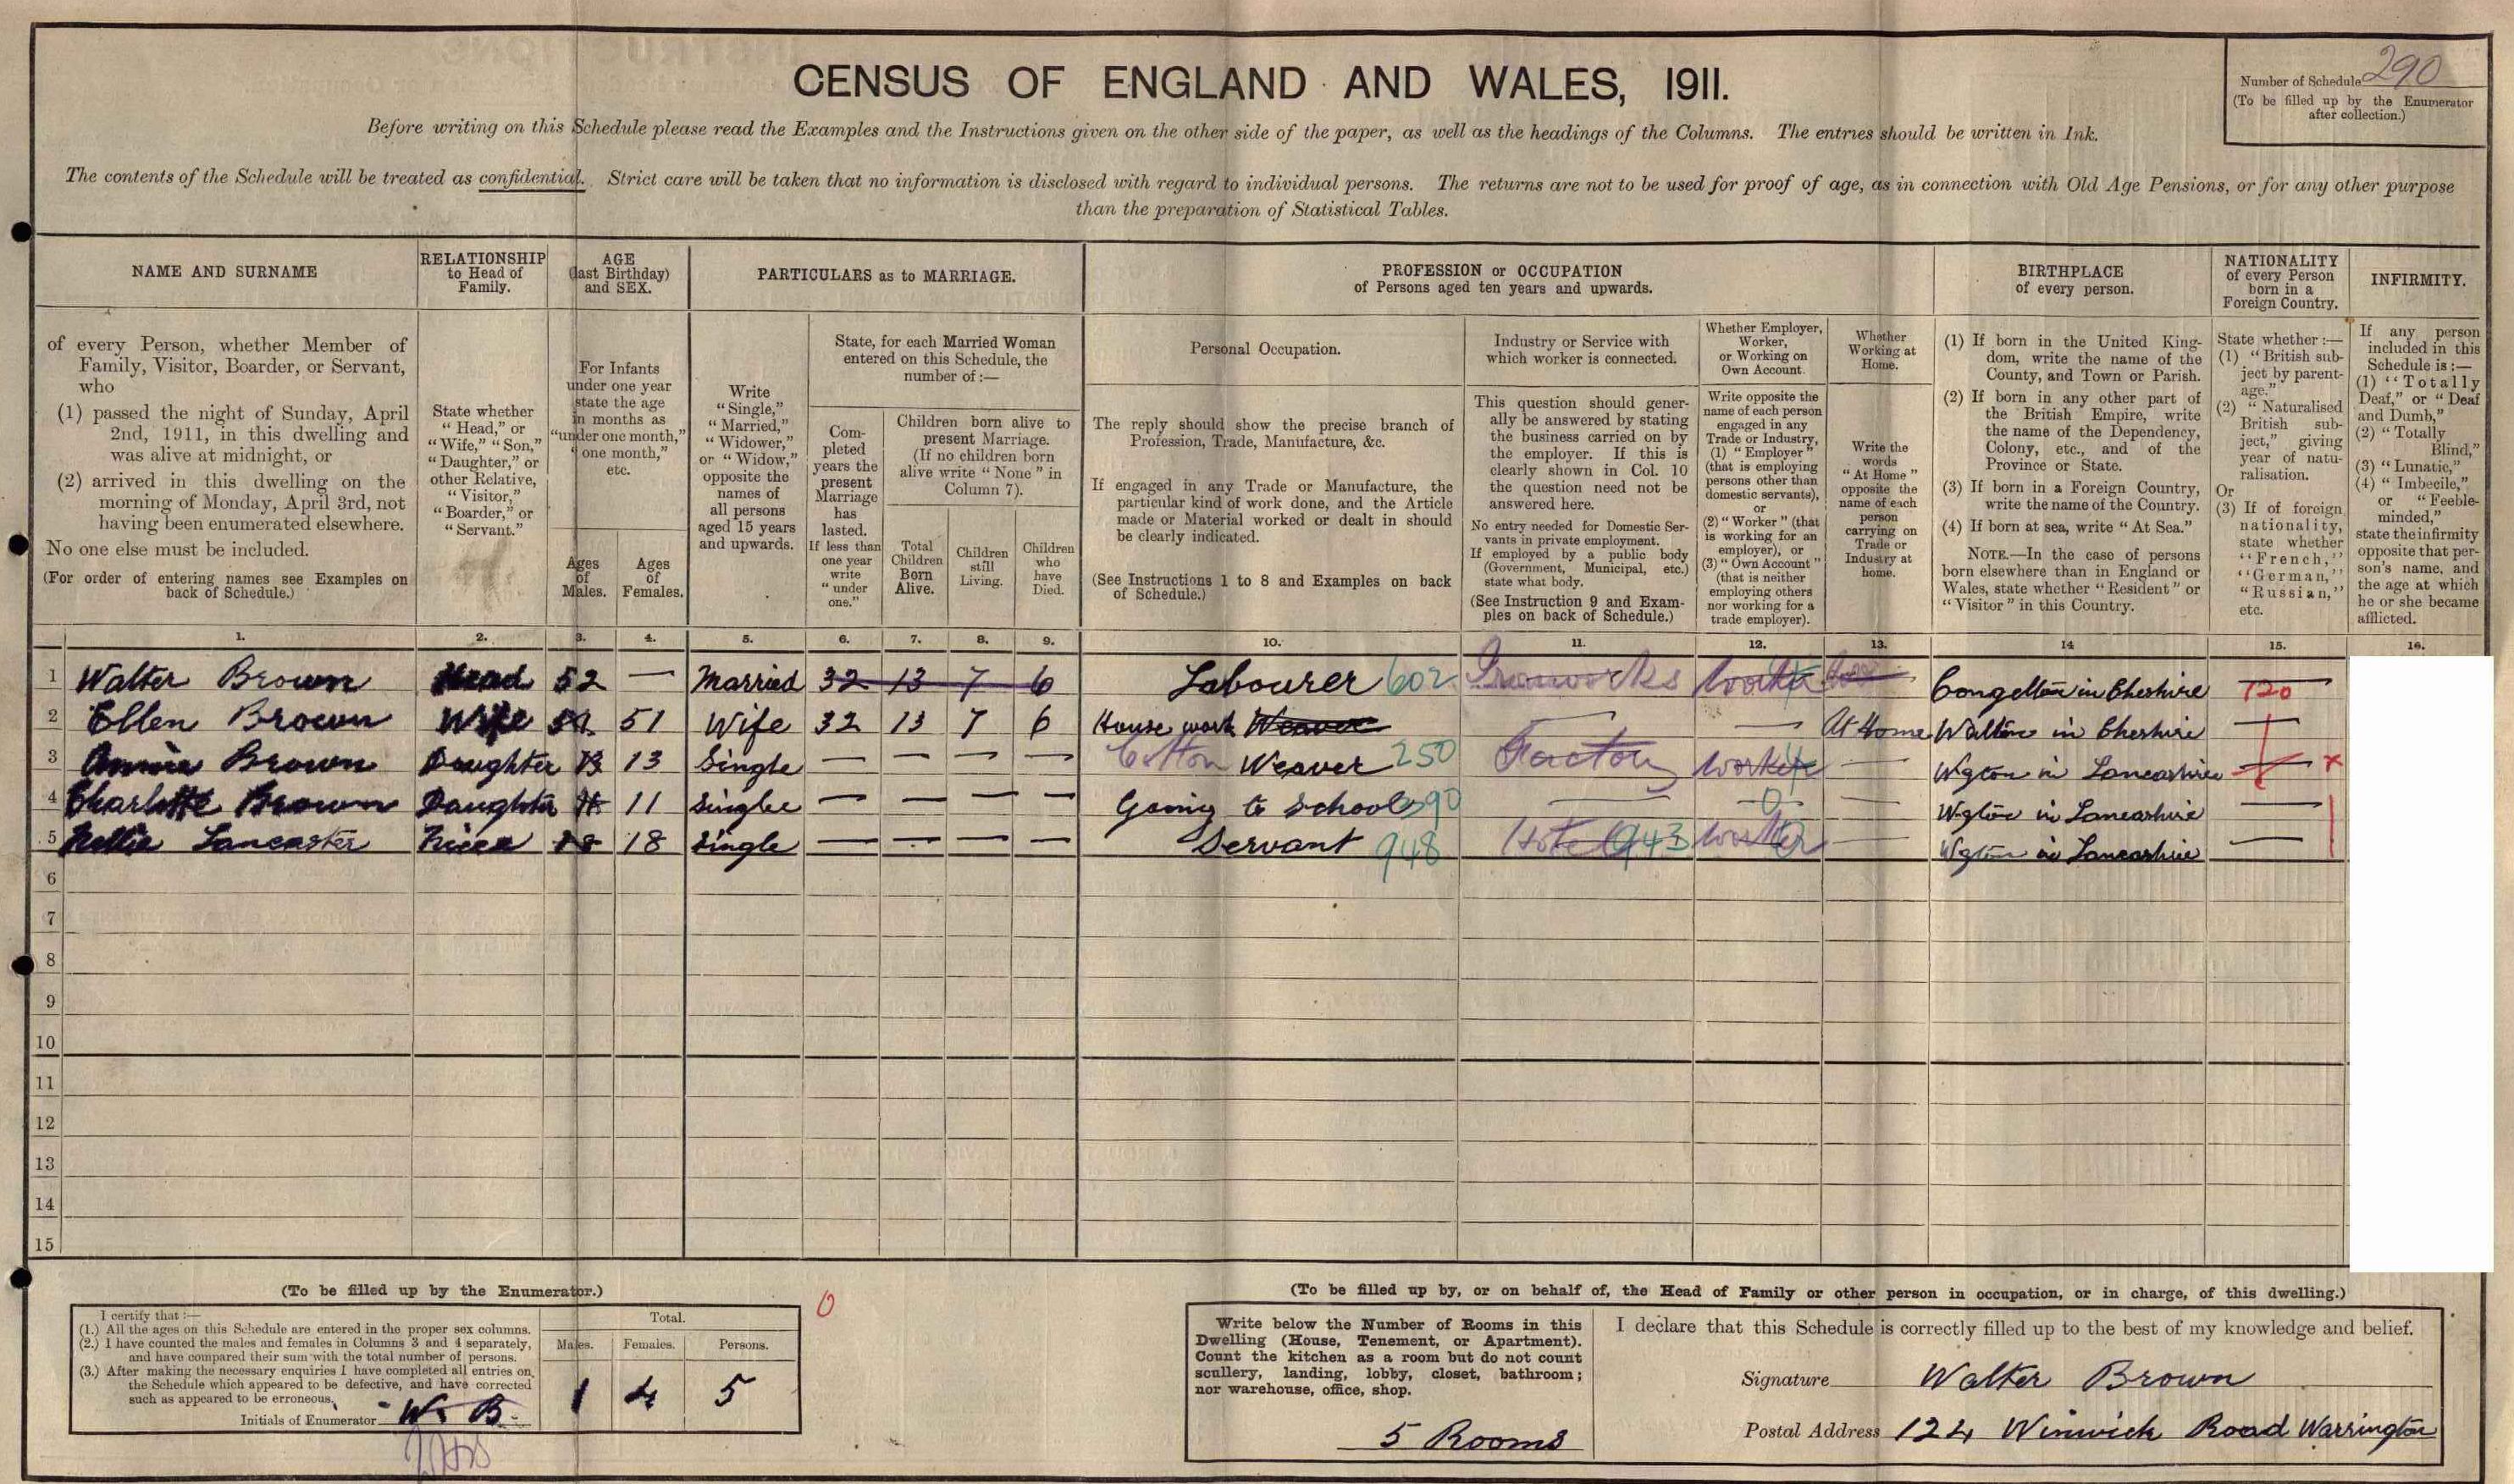 CENSUS OF ENGLAND AND WALES, 1911.
Number of Schedule 290
(To be filled up by the Enumerator
after collection.)
Before writing on this Schedule please read the Examples and the Instructions given on the other side of the paper, as well as the headings of the Columns. The entries should be written in Ink.
The contents of the Schedule will be treated as confidential. Strict care will be taken that no information is disclosed with regard to individual persons. The returns are not to be used for proof of age, as in connection with Old Age Pensions, or for any other purpose
than the preparation of Statistical Tables.
NAME AND SURNAME
of every Person, whether Member of
Family, Visitor, Boarder, or Servant,
who
(1) passed the night of Sunday, April
2nd, 1911, in this dwelling and
was alive at midnight, or
(2) arrived in this dwelling on the
morning of Monday, April 3rd, not
having been enumerated elsewhere.
No one else must be included.
(For order of entering names see Examples on
back of Schedule.)
RELATIONSHIP
to Head of
Family.
State whether
"Head," or
"Wife," "Son,"
"Daughter," or
other Relative,
"Visitor,"
"Boarder," or
"Servant."
AGE
(last Birthday)
and SEX.
For Infants
under one year
state the age
in months as
"under one month,"
"one month,"
etc.
Ages
of
Males.
Ages
of
Females.
PARTICULARS as to MARRIAGE.
Write
"Single,"
"Married,"
"Widower,"
or "Widow,"
opposite the
names of
all persons
aged 15 years
and upwards.
State, for each Married Woman
entered on this Schedule, the
number of:—
Com-
pleted
years the
present
Marriage
has
lasted.
If less than
one year
write
"under
one."
Children born alive to
present Marriage.
(If no children born
alive write "None" in
Column 7).
Total
Children
Born
Alive.
Children
still
Living.
Children
who
have
Died.
PROFESSION or OCCUPATION
of Persons aged ten years and upwards.
Personal Occupation.
The reply should show the precise branch of
Profession, Trade, Manufacture, &c.
If engaged in any Trade or Manufacture, the
particular kind of work done, and the Article
made or Material worked or dealt in should
be clearly indicated.
(See Instructions 1 to 8 and Examples on back
of Schedule.)
Industry or Service with
which worker is connected.
This question should gener-
ally be answered by stating
the business carried on by
the employer. If this is
clearly shown in Col. 10
the question need not be
answered here.
No entry needed for Domestic Ser-
vants in private employment.
If employed by a public body
(Government, Municipal, etc.)
state what body.
(See Instruction 9 and Exam-
ples on back of Schedule.)
Whether Employer,
Worker,
or Working on
Own Account.
Write opposite the
name of each person
engaged in any
Trade or Industry,
(1) "Employer"
(that is employing
persons other than
domestic servants),
or
(2) "Worker" (that
is working for an
employer), or
(3) "Own Account"
(that is neither
employing others
nor working for a
trade employer).
Whether
Working at
Home.
Write the
words
"At Home"
opposite the
name of each
person
carrying on
Trade or
Industry at
home.
BIRTHPLACE
of every person.
(1) If born in the United King-
dom, write the name of the
County, and Town or Parish.
(2) If born in any other part of
the British Empire, write
the name of the Dependency,
Colony, etc., and of the
Province or State.
(3) If born in a Foreign Country,
write the name of the Country.
(4) If born at sea, write "At Sea."
NOTE.—In the case of persons
born elsewhere than in England or
Wales, state whether "Resident" or
"Visitor" in this Country.
NATIONALITY
of every Person
born in a
Foreign Country.
State whether:—
(1) "British sub-
ject by parent-
age."
(2) "Naturalised
British sub-
ject," giving
year of natu-
ralisation.
Or
(3) If of foreign
nationality,
state whether
"French,"
"German,"
"Russian,"
etc.
INFIRMITY.
If any person
included in this
Schedule is:—
(1) "Totally
Deaf," or "Deaf
and Dumb,"
(2) "Totally
Blind,"
(3) "Lunatic,"
(4) "Imbecile,"
or "Feeble-
minded,"
state the infirmity
opposite that per-
son's name, and
the age at which
he or she became
afflicted.
1. 2. 3. 4. 5. 6. 7. 8. 9. 10. 11. 12. 13. 14 15. 16.
1 Walter Brown Head 52 — Married 32 13 7 6 Labourer 602 Ironworks Worker Congelton in Cheshire 720
2 Ellen Brown Wife 51 Wife 32 13 7 6 House work Weaver — — At Home Walton in Cheshire —
3 Annie Brown Daughter 13 13 Single — — — — Cotton Weaver 250 Factory Worker — Wgton in Lancashire — x
4 Charlotte Brown Daughter 11 11 Single — — — — Going to School 390 — 0 — Wgton in Lancashire —
5 Nellie Lancaster Niece 18 18 Single — — — — Servant 948 Hotel 943 Worker — Wgton in Lancashire —
6
7
8
9
10
11
12
13
14
15
(To be filled up by the Enumerator.)
I certify that:—
(1.) All the ages on this Schedule are entered in the proper sex columns.
(2.) I have counted the males and females in Columns 3 and 4 separately,
and have compared their sum with the total number of persons.
(3.) After making the necessary enquiries I have completed all entries on
the Schedule which appeared to be defective, and have corrected
such as appeared to be erroneous.
Initials of Enumerator W. B.
Total.
Males. Females. Persons.
1 4 5
0
(To be filled up by, or on behalf of, the Head of Family or other person in occupation, or in charge, of this dwelling.)
Write below the Number of Rooms in this
Dwelling (House, Tenement, or Apartment).
Count the kitchen as a room but do not count
scullery, landing, lobby, closet, bathroom;
nor warehouse, office, shop.
5 Rooms
I declare that this Schedule is correctly filled up to the best of my knowledge and belief.
Signature Walter Brown
Postal Address 124 Winwick Road Warrington